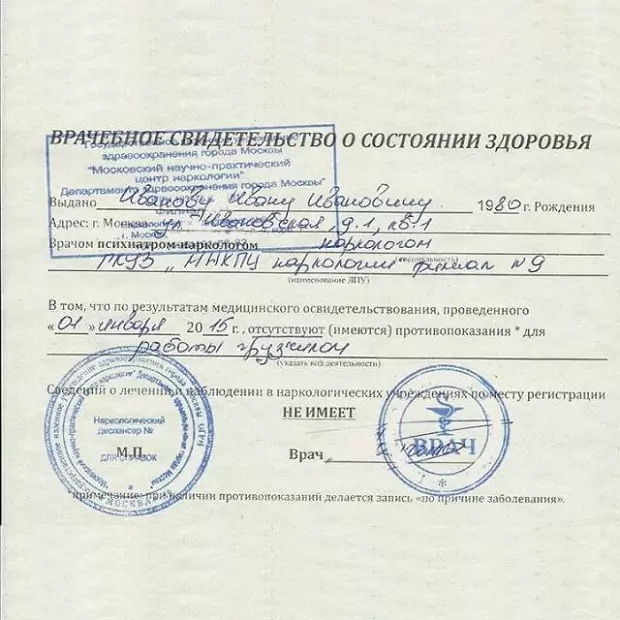 ВРАЧЕБНОЕ СВИДЕТЕЛЬСТВО О СОСТОЯНИИ ЗДОРОВЬЯ
здравоохранения города Москвы
"Московский научно-практический
центр наркологии"
Департамента здравоохранения города Москвы"
Выдано Иванову Ивану Ивановичу 1980 г. Рождения
Адрес: г. Москва ул. Ивановская, д.1, кв.1
Врачом психиатром-наркологом наркологом
ГКУЗ „МНПЦ наркологии филиал №9
(наименование ЛПУ)
В том, что по результатам медицинского освидетельствования, проведенного
«01» января 2015 г., отсутствуют (имеются) противопоказания * для
работы грузчиком
(указать вид деятельность)
Сведений о лечении и наблюдении в наркологических учреждениях по месту регистрации
НЕ ИМЕЕТ
Наркологический
диспансер №
ДЛЯ СПРАВОК
М.П.
МОСКВА
Врач
ВРАЧ
*примечание: при наличии противопоказаний делается запись «по причине заболевания».